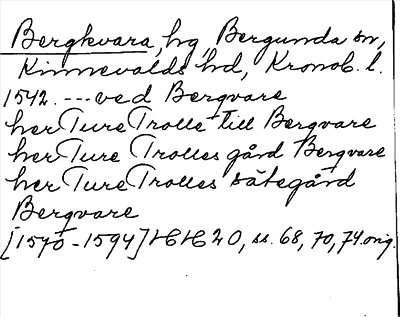 Bergkvara, hg, Bergunda sn,
Kinnevalds hd, Kronob. l.
1542. --- ved Bergvare
her Ture Trolle till Bergvare
her Ture Trolles gård Bergvare
her Ture Trolles sätegård
Bergvare
[1570-1594] HH 20, ss. 68, 70, 74. orig.